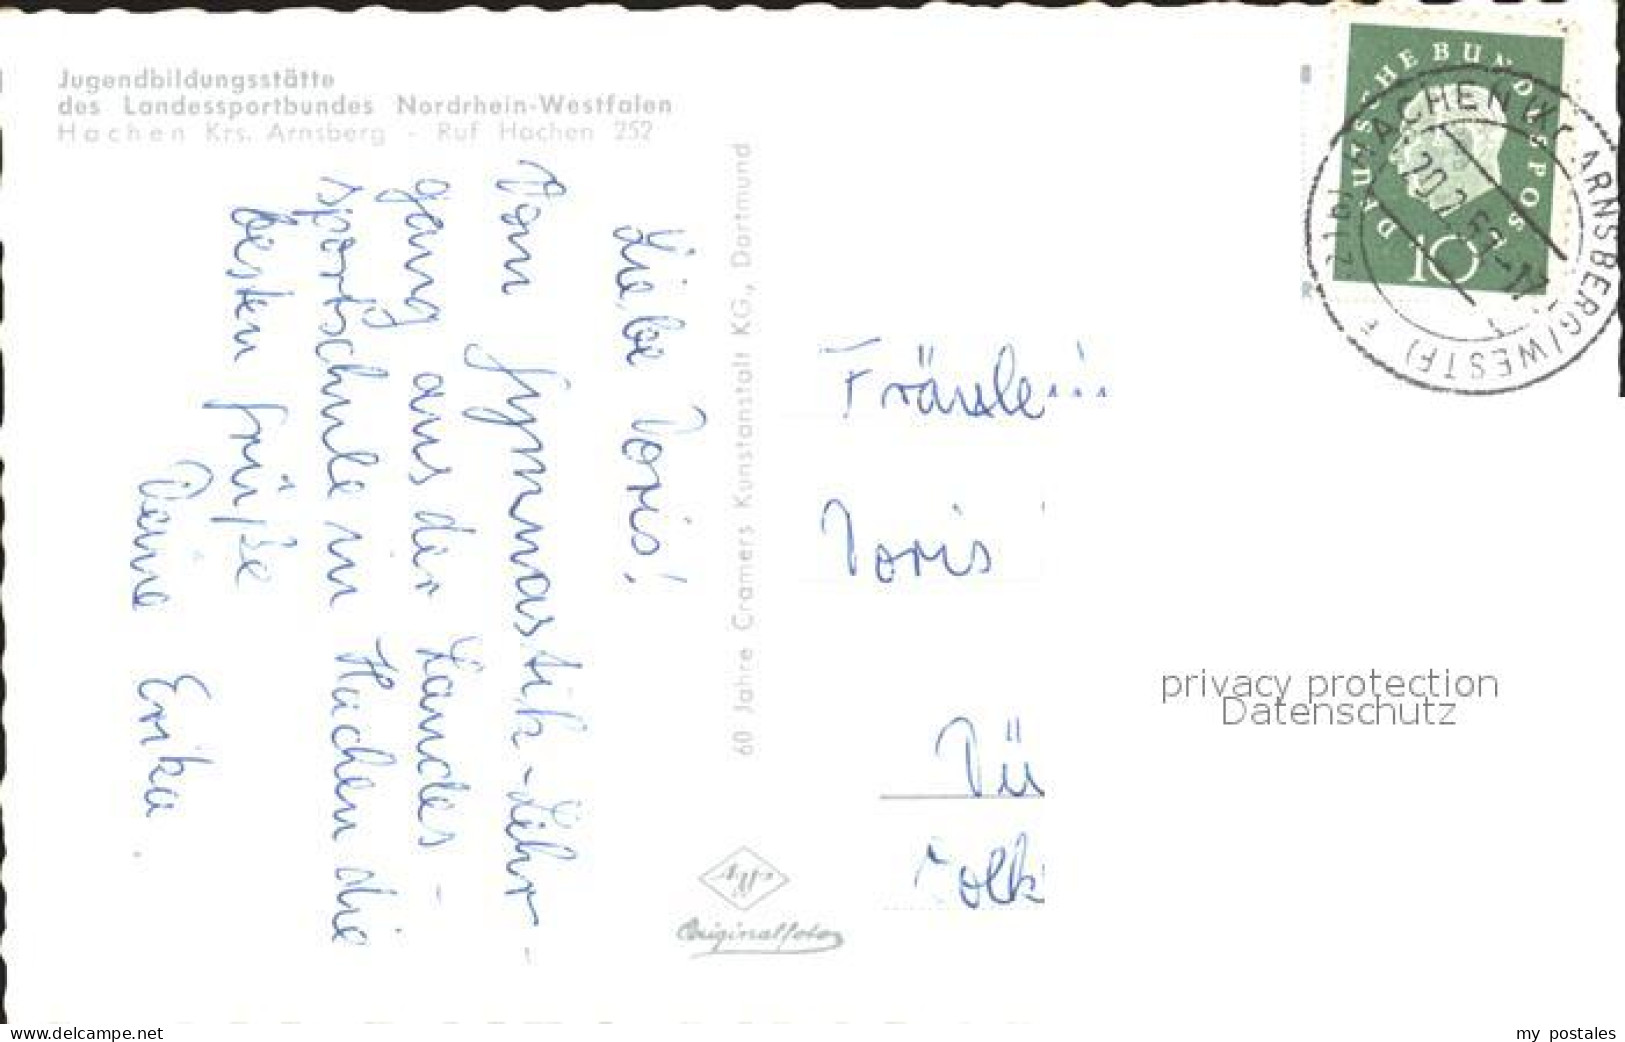 Jugendbildungsstätte
des Landessportbundes Nordrhein-Westfalen
Hachen Krs. Arnsberg - Ruf Hachen 252
Liebe Doris!
Vom Gymnastik-Lehr-
gang aus der Landes-
sportschule in Hachen die
besten Grüße
Deine Erika.
60 Jahre Cramers Kunstanstalt KG., Dortmund
Agfa
Originalfoto
DEUTSCHE BUNDESPOST
10
HACHEN ARNSBERG/WESTF)
Fräulein
Doris
Dü
privacy protection
Datenschutz
www.delcampe.net
my postales